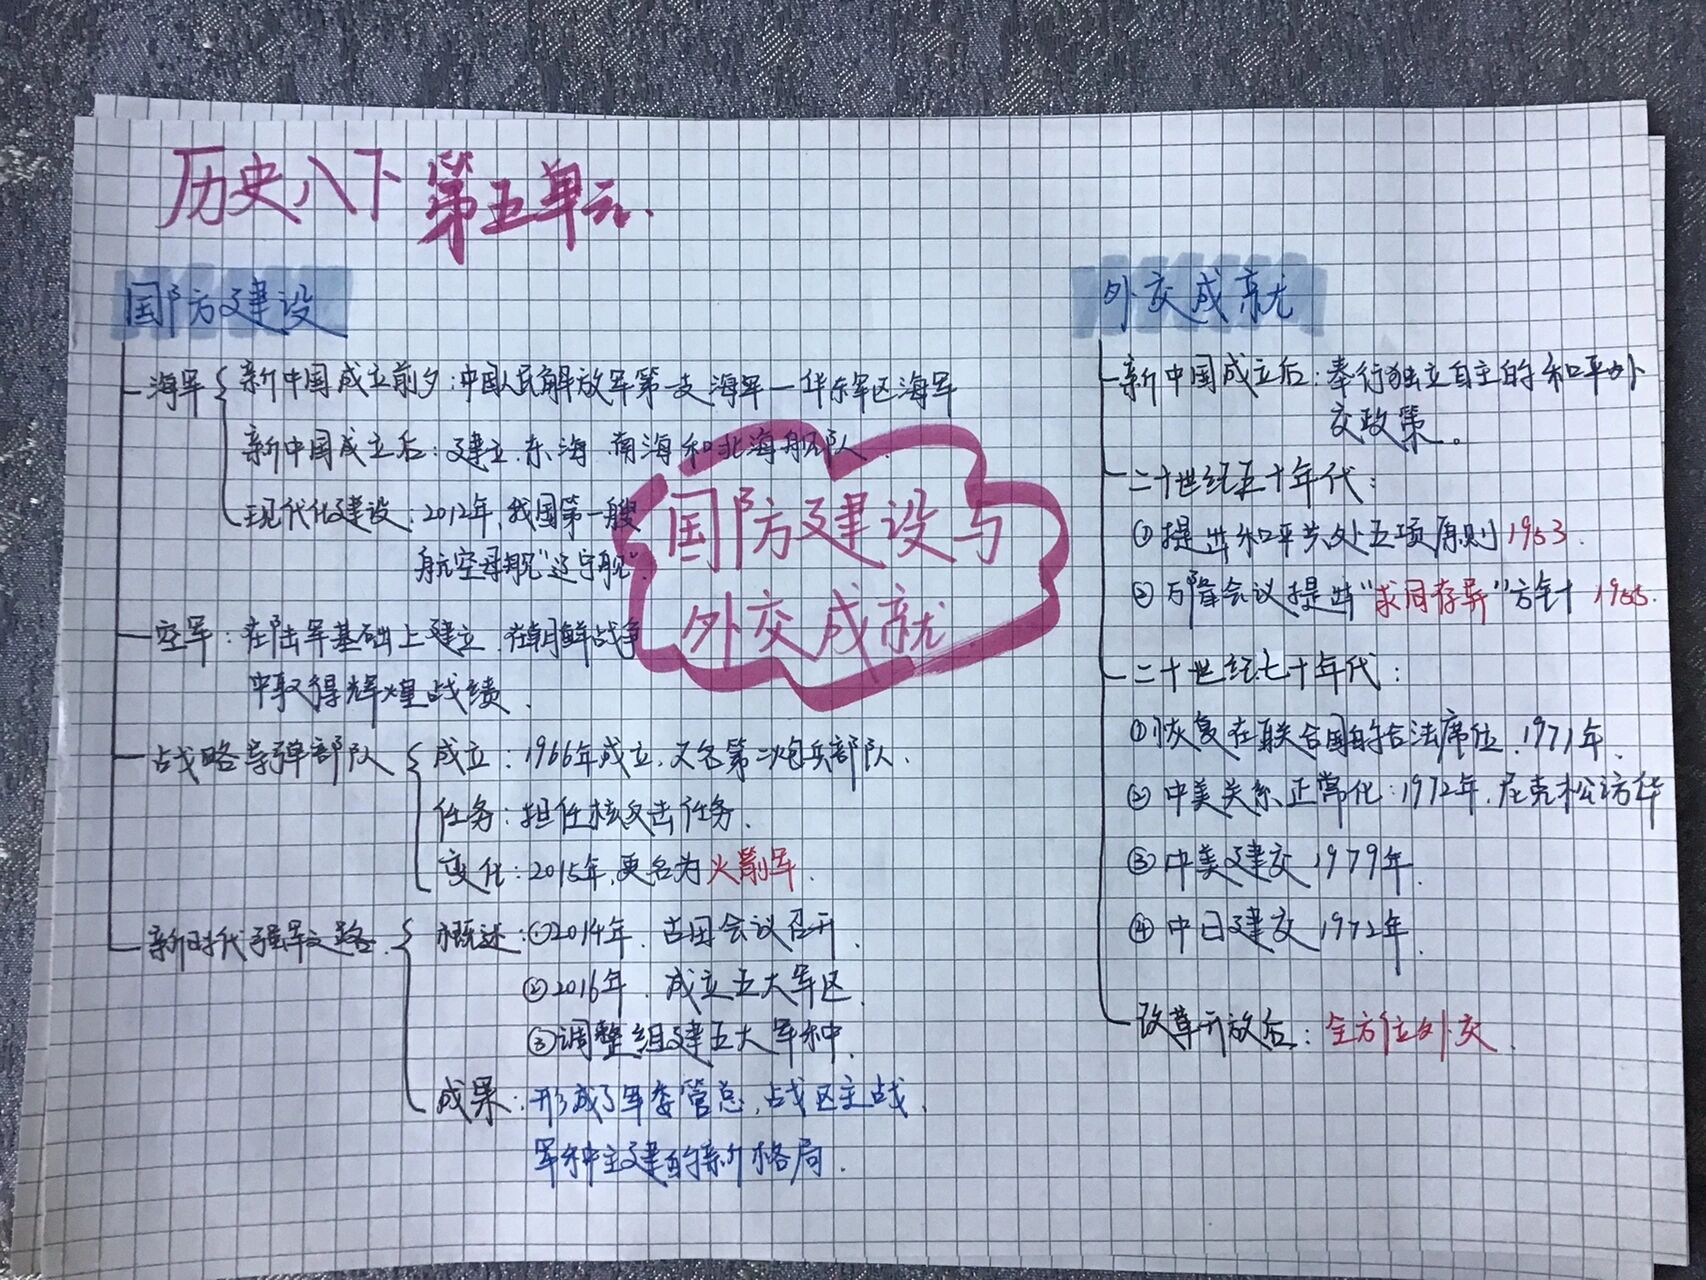 历史八下 第五单元.
国防建设
海军
新中国成立前夕:中国人民解放军第一支海军—华东军区海军
新中国成立后:建立东海 南海和北海舰队.
现代化建设:2012年,我国第一艘
航空母舰"辽宁舰".
空军:在陆军基础上建立.在朝鲜战争
中取得辉煌战绩.
战略导弹部队
成立:1966年成立,又名第二炮兵部队.
任务:担任核反击任务.
变化:2015年,更名为火箭军.
新时代强军之路
概述:①2014年.古田会议召开
②2016年.成立五大军区.
③调整组建五大军种.
成果:形成了军委管总,战区主战,
军种主建的新格局.
国防建设与
外交成就
外交成就
新中国成立后:奉行独立自主的和平外
交政策。
二十世纪五十年代:
①提出和平共处五项原则1953.
②万隆会议提出"求同存异"方针 1955.
二十世纪七十年代:
①恢复在联合国的合法席位.1971年.
②中美关系正常化:1972年.尼克松访华
③中美建交1979年.
④中日建交1972年.
改革开放后:全方位外交.